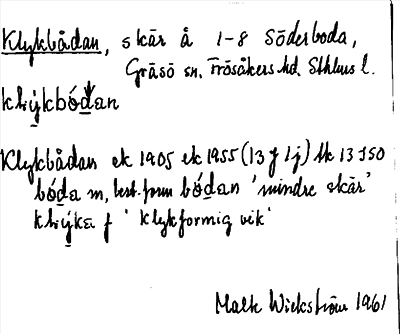 Klykbådan, skär å 1-8 Söderboda,
Gräsö sn. Frösåkers hd. Sthlms l.
klýkbódan
Klykbådan ek 1905 ek 1955 (13 J 1j) lk 13 I 50
bóda m, best. form bódan 'mindre skär'
klýka f 'klykformig vik'
Malk Wickström 1961